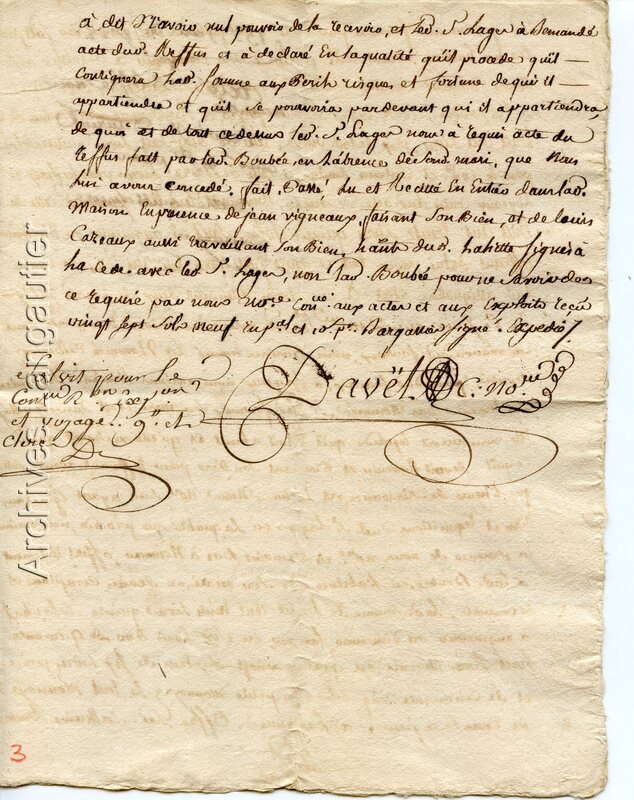 à dit N'avoir nul pouvoir de la recevoir, et led. S. Lager à Demandé
acte du Reffus et à declaré En la qualité quil procede quil
Consignera lad. somme aux Perils risques et fortune de qui il
appartiendra et quil se pourvoira pardevant qui il appartiendra,
de quoi et de tout ce dessus led. S. Lager nous à requi acte du
reffus fait par lad. Boubée en l'absence de sond. mari, que Nous
lui avons Concedé. fait, Passé, lu et Recitté En dans lad.
Maison En presence de jean vigneaux faisant son Bien, et de louis
Cazeaux aussi travaillant son Bien, hants du d. Lahitte signés à
la Cede avec led. S. Lager, non lad. Boubée pour ne savoir de
ce requise par nous no.re aux actes et aux Exploits
vingt sept sols neuf et signé. Expedié
Davët no.re
pour le
et voyage
clerc D
Archives Langautier
3